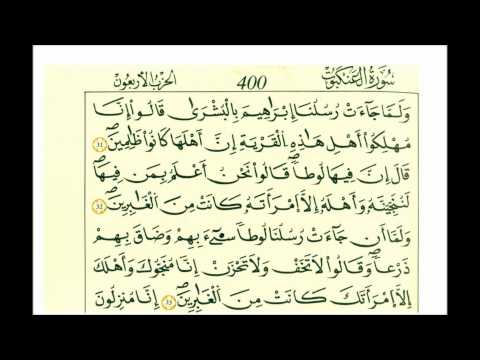 سُورَةُ الْعَنكَبُوت 400 الحزب الأربعون
وَلَمَّا جَآءَتْ رُسُلُنَآ إِبْرَٰهِيمَ بِالْبُشْرَىٰ قَالُوٓاْ إِنَّا
مُهْلِكُوٓاْ أَهْلِ هَٰذِهِ الْقَرْيَةِ إِنَّ أَهْلَهَا كَانُواْ ظَٰلِمِينَ 31
قَالَ إِنَّ فِيهَا لُوطاً قَالُواْ نَحْنُ أَعْلَمُ بِمَن فِيهَا
لَنُنَجِّيَنَّهُۥ وَأَهْلَهُۥٓ إِلَّا امْرَأَتَهُۥ كَانَتْ مِنَ الْغَٰبِرِينَ 32
وَلَمَّآ أَن جَآءَتْ رُسُلُنَا لُوطاً سِےٓءَ بِهِمْ وَضَاقَ بِهِمْ
ذَرْعاً وَقَالُواْ لَا تَخَفْ وَلَا تَحْزَنْ إِنَّا مُنَجُّوكَ وَأَهْلَكَ
إِلَّا امْرَأَتَكَ كَانَتْ مِنَ الْغَٰبِرِينَ 33 إِنَّا مُنزِلُونَ